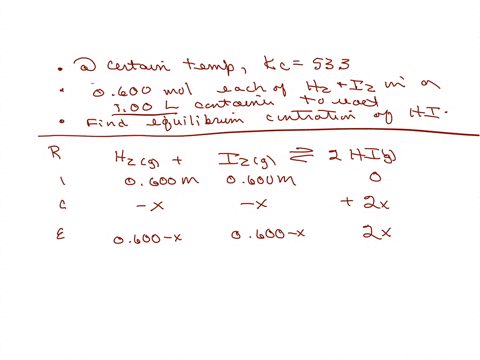 • @ certain temp, Kc = 533
• 0.600 mol each of H2 + I2 in a
1.00 L container to react
• Find equilibrium of HI.
R H2(g) + I2(g) ⇌ 2 HI(g)
I 0.600 M 0.600 M 0
C -x -x + 2x
E 0.600-x 0.600-x 2x